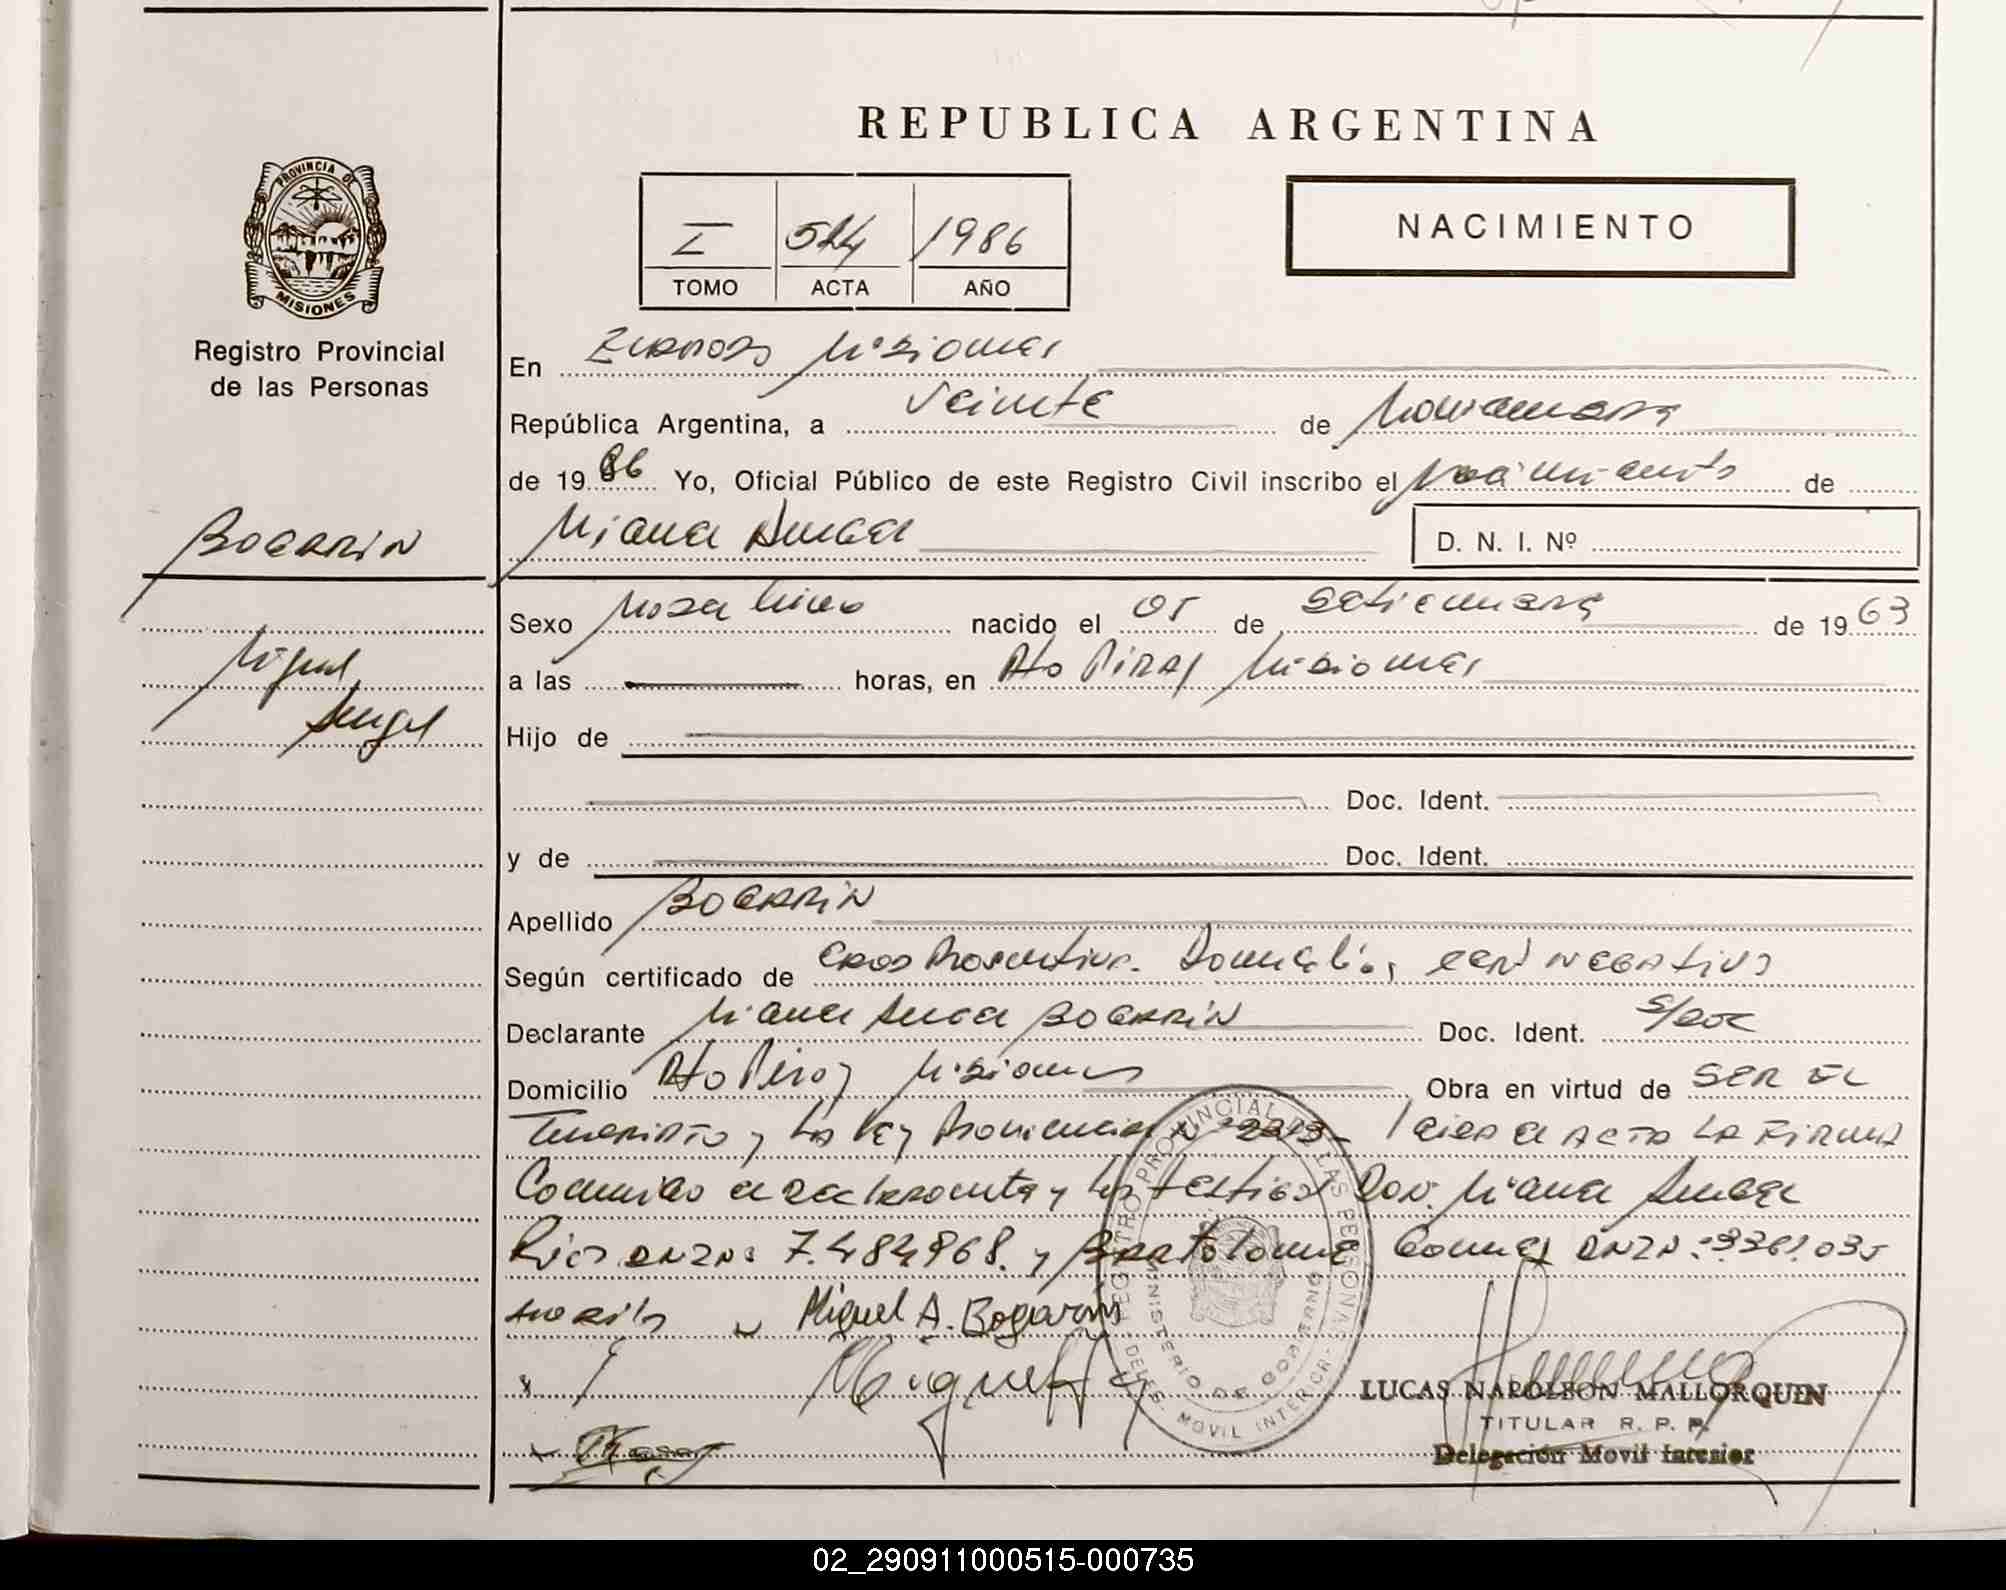 REPUBLICA ARGENTINA
PROVINCIA DE
MISIONES
Registro Provincial
de las Personas
I 1986
TOMO ACTA AÑO
NACIMIENTO
En Misiones
República Argentina, a Veinte de Noviembre
de 1986 Yo, Oficial Público de este Registro Civil inscribo el Nacimiento de
BOGARIN
Miguel Angel
D. N. I. Nº
Miguel
Angel
Sexo Masculino nacido el 05 de Setiembre de 1963
a las horas, en Pto Piray Misiones
Hijo de
Doc. Ident.
y de Doc. Ident.
Apellido BOGARIN
Según certificado de NEGATIVO
Declarante Miguel Angel BOGARIN Doc. Ident. S/DOC
Domicilio Pto Piray Misiones Obra en virtud de SER EL
INSCRIPTO y LA Ley Provincial Nº Leida el ACTA LA FIRMA
Conmigo el declarante y los testigos Don: Miguel Angel
7.484968. y Bartolome Gomez
Miguel A. Bogarin
Miguel
REGISTRO PROVINCIAL DE LAS PERSONAS
MINISTERIO DE GOBERNO
DELEG. MOVIL INTERIOR
LUCAS NAPOLEON MALLORQUIN
TITULAR R. P. P.
Delegación Movil Interior
02_290911000515-000735